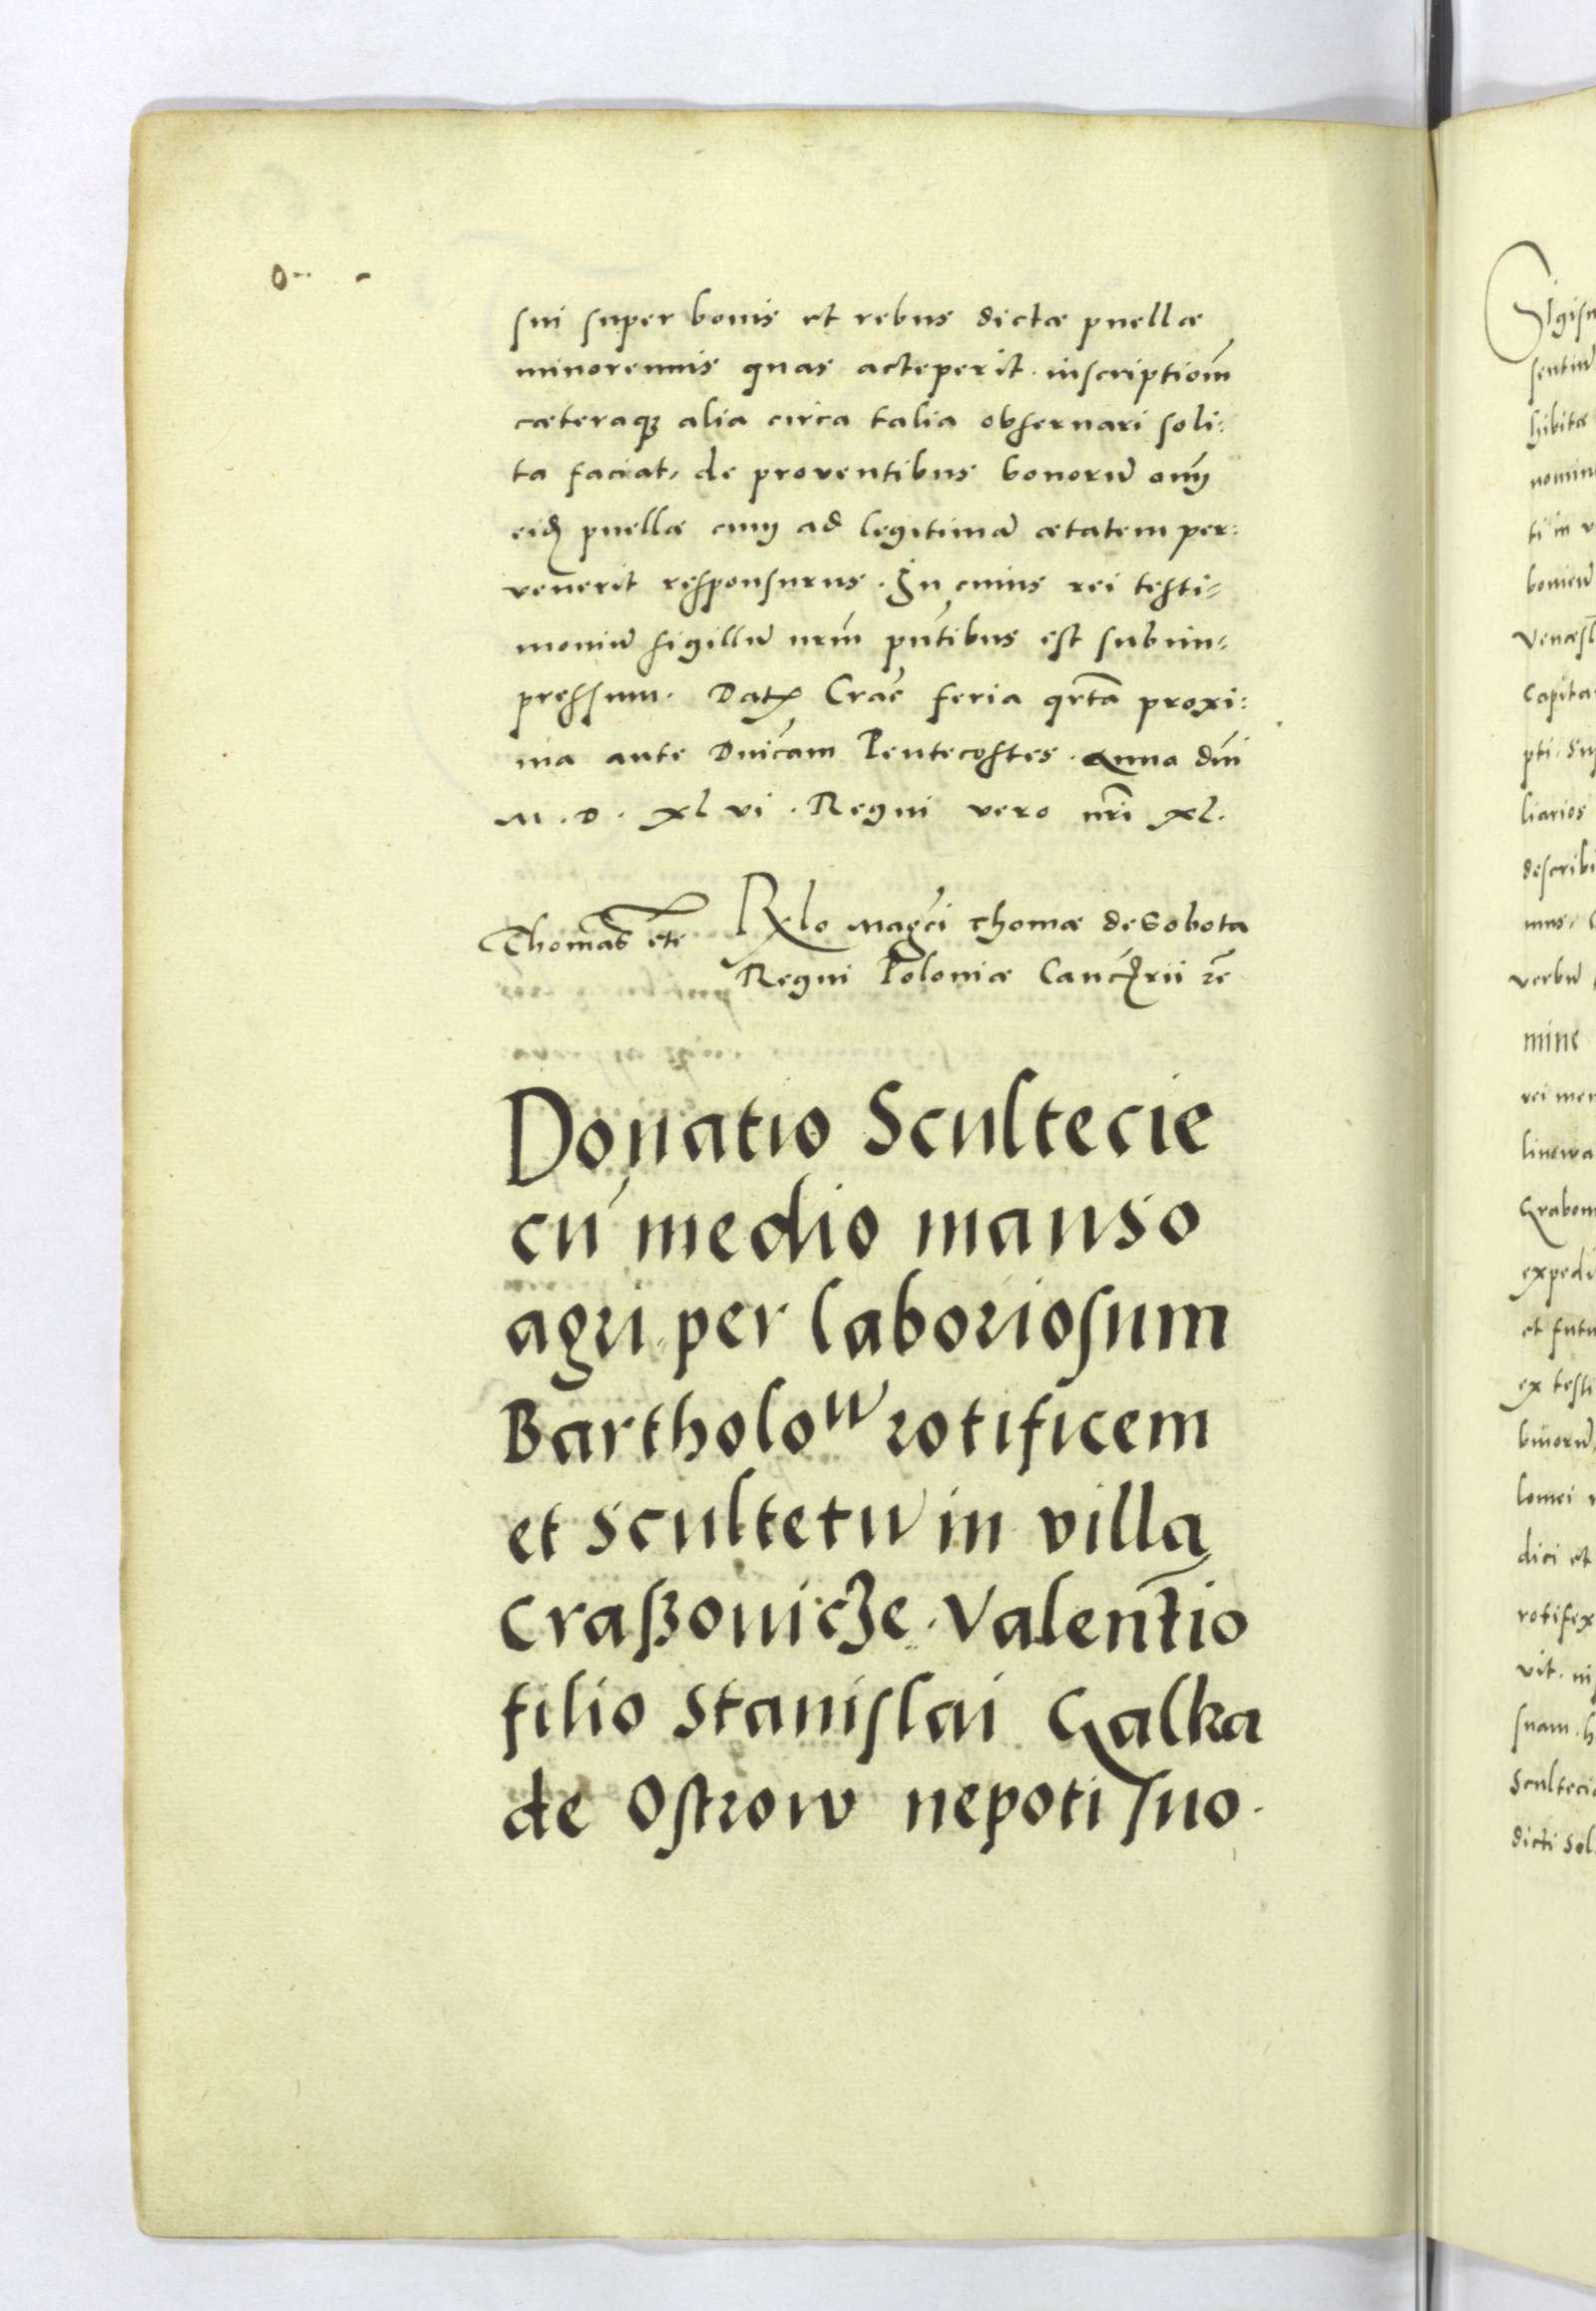 sui super bonis et rebus dictæ puellæ
minorennis quas acceperit. inscriptiom̃
cæteraqꝫ alia circa talia observari soli:
ta faciat, de proventibus bonorũ om̃
eidꝫ puellæ cum ad legitimã ætatem per:
venerit responsurus. In cuius rei testi=
moniũ sigillũ nrm̃ pñtibus est subim=
pressum. Datꝫ Crac̃ feria qrta͂ proxi:
ma ante Dnic̃am Pentecostes. Anno dñi
M. D. xl vi. Regni vero nr̃i xl.
Thomas etc̃
Relo Magc̃i Thomæ de Sobota
Regni Poloniæ Canc̃rii rc̃
Donatio Scultecie
cũ medio manso
agri per laboriosum
Bartholoũ rotificem
et Scultetũ in villa
Craßouicze. Valent̃io
filio Stanislai Galka
de Ostrow nepoti suo.
Sigis
sentiũ
hibitæ
nomin
ti in v
boniciũ
Vencesl
capita
pti. Su
liarios
describi
mus.
verbũ
mine
rei mem
linowa
Grabow
expedi
et futu
ex testi
binorũ
lomei
dici et
rotifex
vit. in
suam. h
Sculteci
dicti Sol